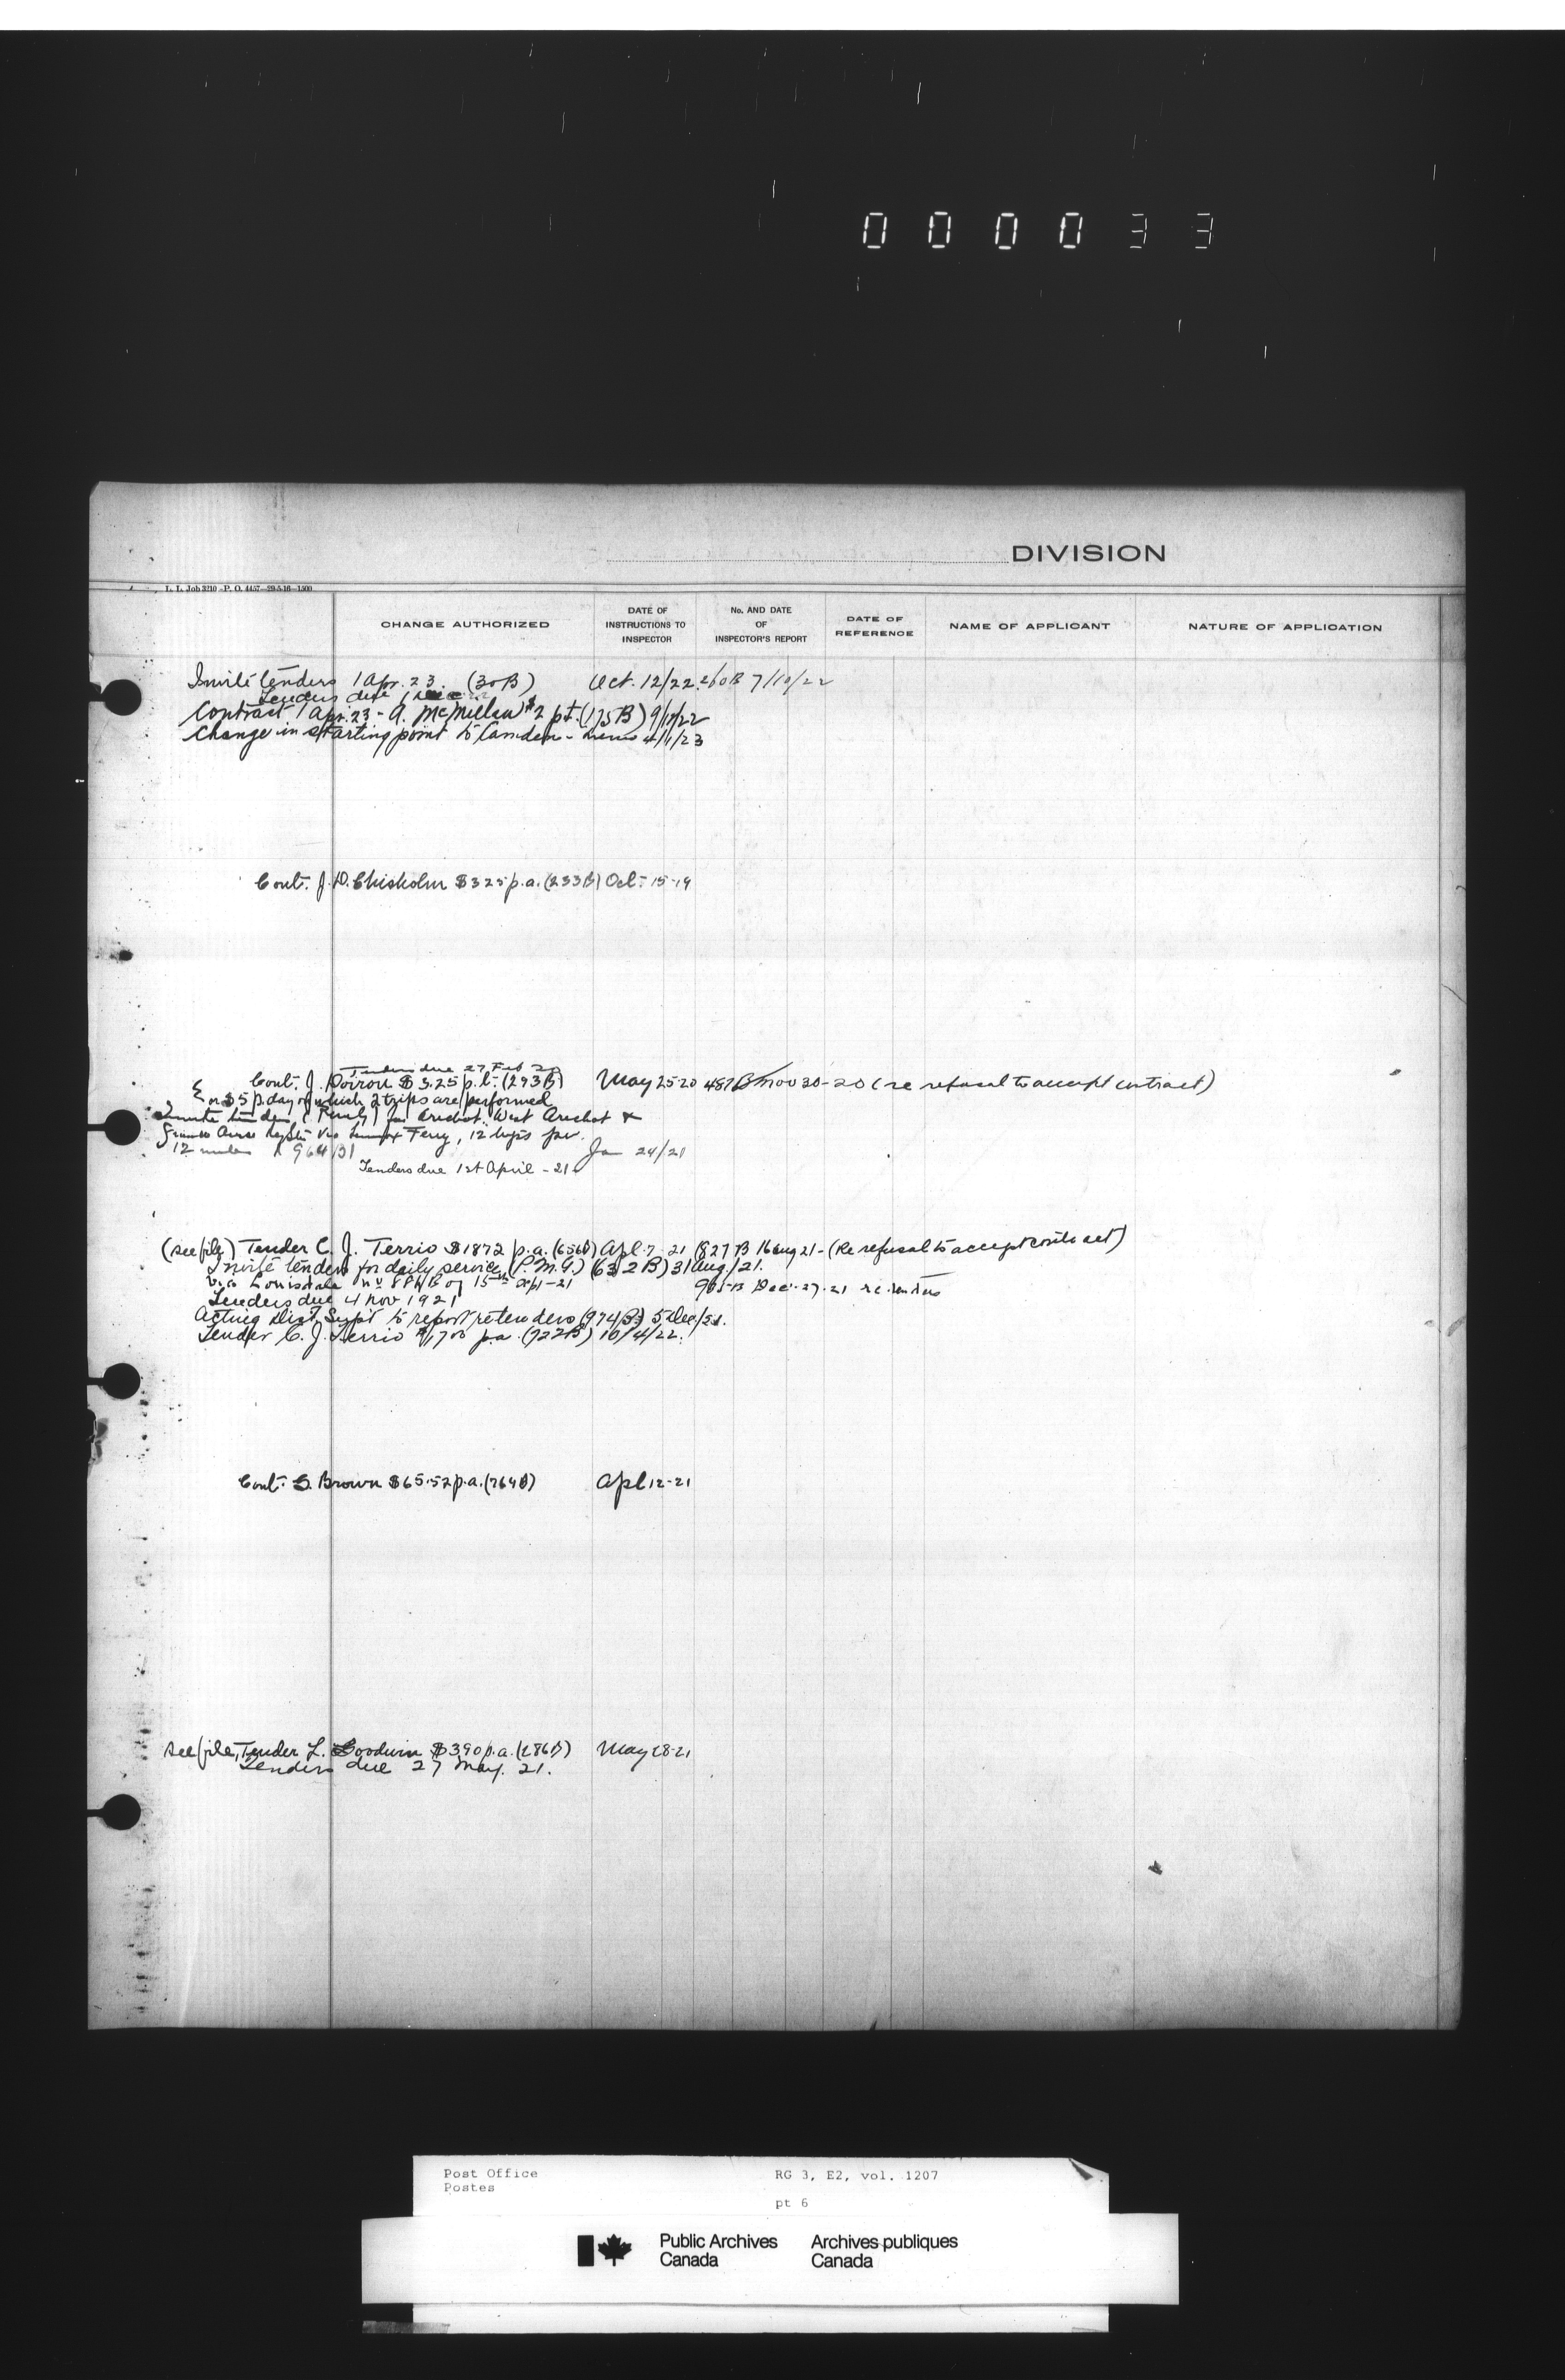 000033
DIVISION
L. L. Job 3210—P. O. 4457—29-5-16—1500
CHANGE AUTHORIZED
DATE OF INSTRUCTIONS TO INSPECTOR
No. AND DATE OF INSPECTOR'S REPORT
DATE OF REFERENCE
NAME OF APPLICANT
NATURE OF APPLICATION
Invite tenders 1 Apr. 23. (30B) Oct. 12/22 260B 7/10/22
Tenders due 1
Contract 1 Apr. 23 - A. McMillan $2 p.t. (175B) 9/12/22
Change in starting point to Camden - 4/1/23
Cont. J. D. Chisholm $325 p.a. (233B) Oct. 15-19
Tenders due 27 Feb 20
Cont. J. Poirou $3.25 p.t. (293B) May 25-20 487B Nov 30-20 (re refusal to accept contract)
or $5 p. day of which 2 trips are performed
Invite tenders for Arichat West Arichat &
via Ferry, 12 trips per
12 964B Ja 24/21
Tenders due 1st April - 21
(see file) Tender C. J. Terrio $1872 p.a. (656B) Apl. 7-21 (827B 16 Aug 21 - (Re refusal to accept contract)
Invite tenders for daily service (P.M.G.) (632B) 31 Aug./21.
via Louisdale of 15th Sept-21 905B Dec. 27-21 re tenders
Tenders due 4 Nov 1921
Acting Dist. Supt to report re tenders (974B) 5 Dec/21.
Tender C. J. Terrio $1700 pa. (722B) 10/4/22.
Cont. S. Brown $65.52 p.a. (764B) Apl 12-21
see file, Tender L. Goodwin $390 p.a. (286B) May 28-21
Tenders due 27 May. 21.
Post Office RG 3, E2, vol. 1207
Postes
pt 6
Public Archives Archives publiques
Canada Canada